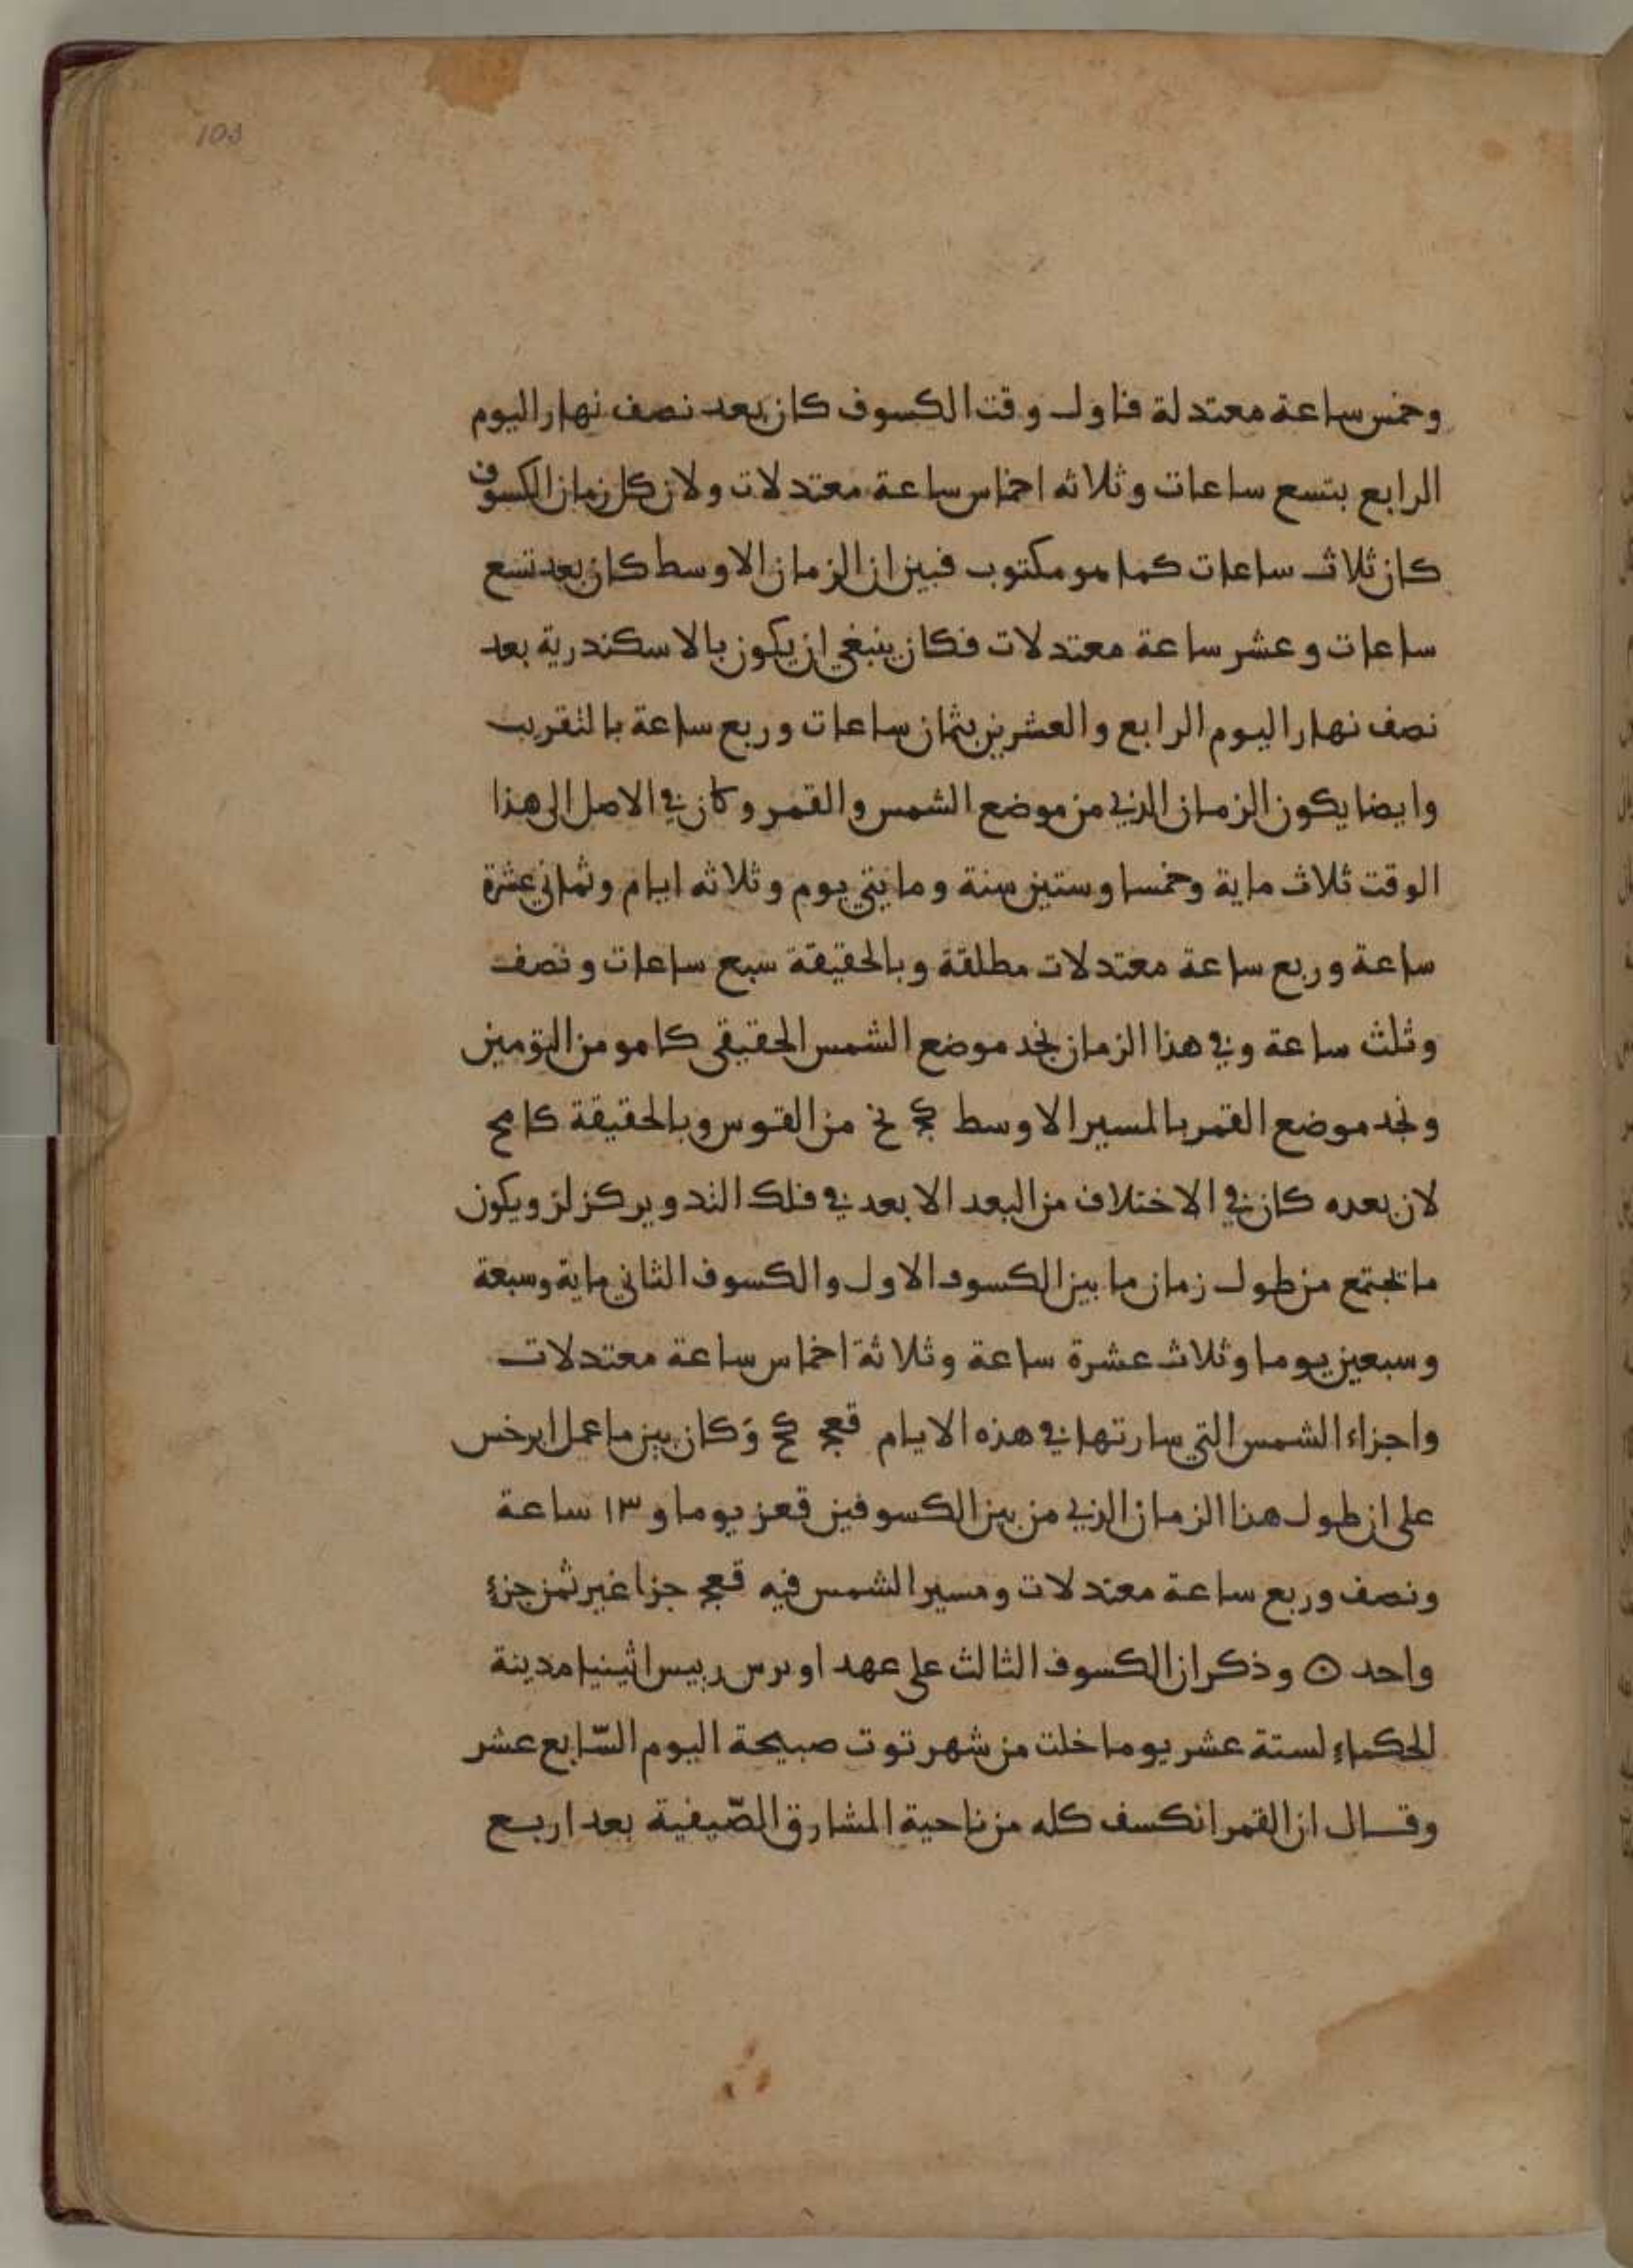 103
وخمس ساعة معتدلة فاول وقت الكسوف كان بعد نصف نهار اليوم
الرابع بتسع ساعات وثلاثه اخماس ساعة معتدلات ولان كل زمان الكسوف
كان ثلاث ساعات كما هو مكتوب فبين ان الزمان الاوسط كان بعد تسع
ساعات وعشر ساعة معتدلات فكان ينبغي ان يكون بالاسكندرية بعد
نصف نهار اليوم الرابع والعشرين بثمان ساعات وربع ساعة بالتقريب
وايضا يكون الزمان الذي من موضع الشمس والقمر وكان في الاصل الى هذا
الوقت ثلاث ماية وخمسا وستين سنة ومايتي يوم وثلاثه ايام وثماني عشرة
ساعة وربع ساعة معتدلات مطلقة وبالحقيقة سبع ساعات ونصف
وثلث ساعة وفي هذا الزمان نجد موضع الشمس الحقيقي كا مو من التومين
ونجد موضع القمر بالمسير الاوسط كج نح من القوس وبالحقيقة كا مح
لان بعده كان في الاختلاف من البعد الابعد في فلك التدوير كز لز ويكون
ما تجتمع من طول زمان ما بين الكسوف الاول والكسوف الثاني ماية وسبعة
وسبعين يوما وثلاث عشرة ساعة وثلاثة اخماس ساعة معتدلات
واجزاء الشمس التي سارتها في هذه الايام قعج كح وكان بين ما عمل ابرخس
على ان طول هذا الزمان الذي من بين الكسوفين قعز يوما و ١٣ ساعة
ونصف وربع ساعة معتدلات ومسير الشمس فيه قعج جزا غير ثمن جزء
واحد ۞ وذكر ان الكسوف الثالث على عهد اوبرس رييس اثينيا مدينة
الحكماء لستة عشر يوما خلت من شهر توت صبيحة اليوم السّابع عشر
وقال ان القمر انكسف كله من ناحية المشارق الصّيفية بعد اربع